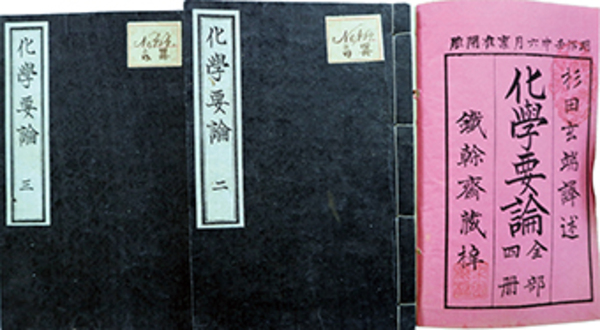 化學要論 三
化學要論 二
明治壬申六月
杉田玄端譯述
化學要論
全部
四册
鐵幹齋藏梓